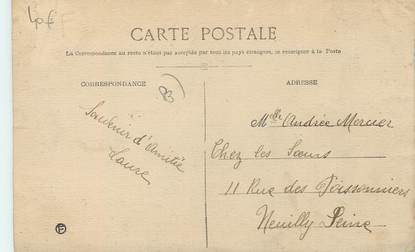 CARTE POSTALE
La Correspondance au recto n'étant pas acceptée par tous les pays étrangers, se renseigner à la Poste
CORRESPONDANCE
ADRESSE
Souvenir d'Amitié
Laure
Melle Andrée Mercier
Chez les Sœurs
11 Rue des Poissonniers
Neuilly Seine